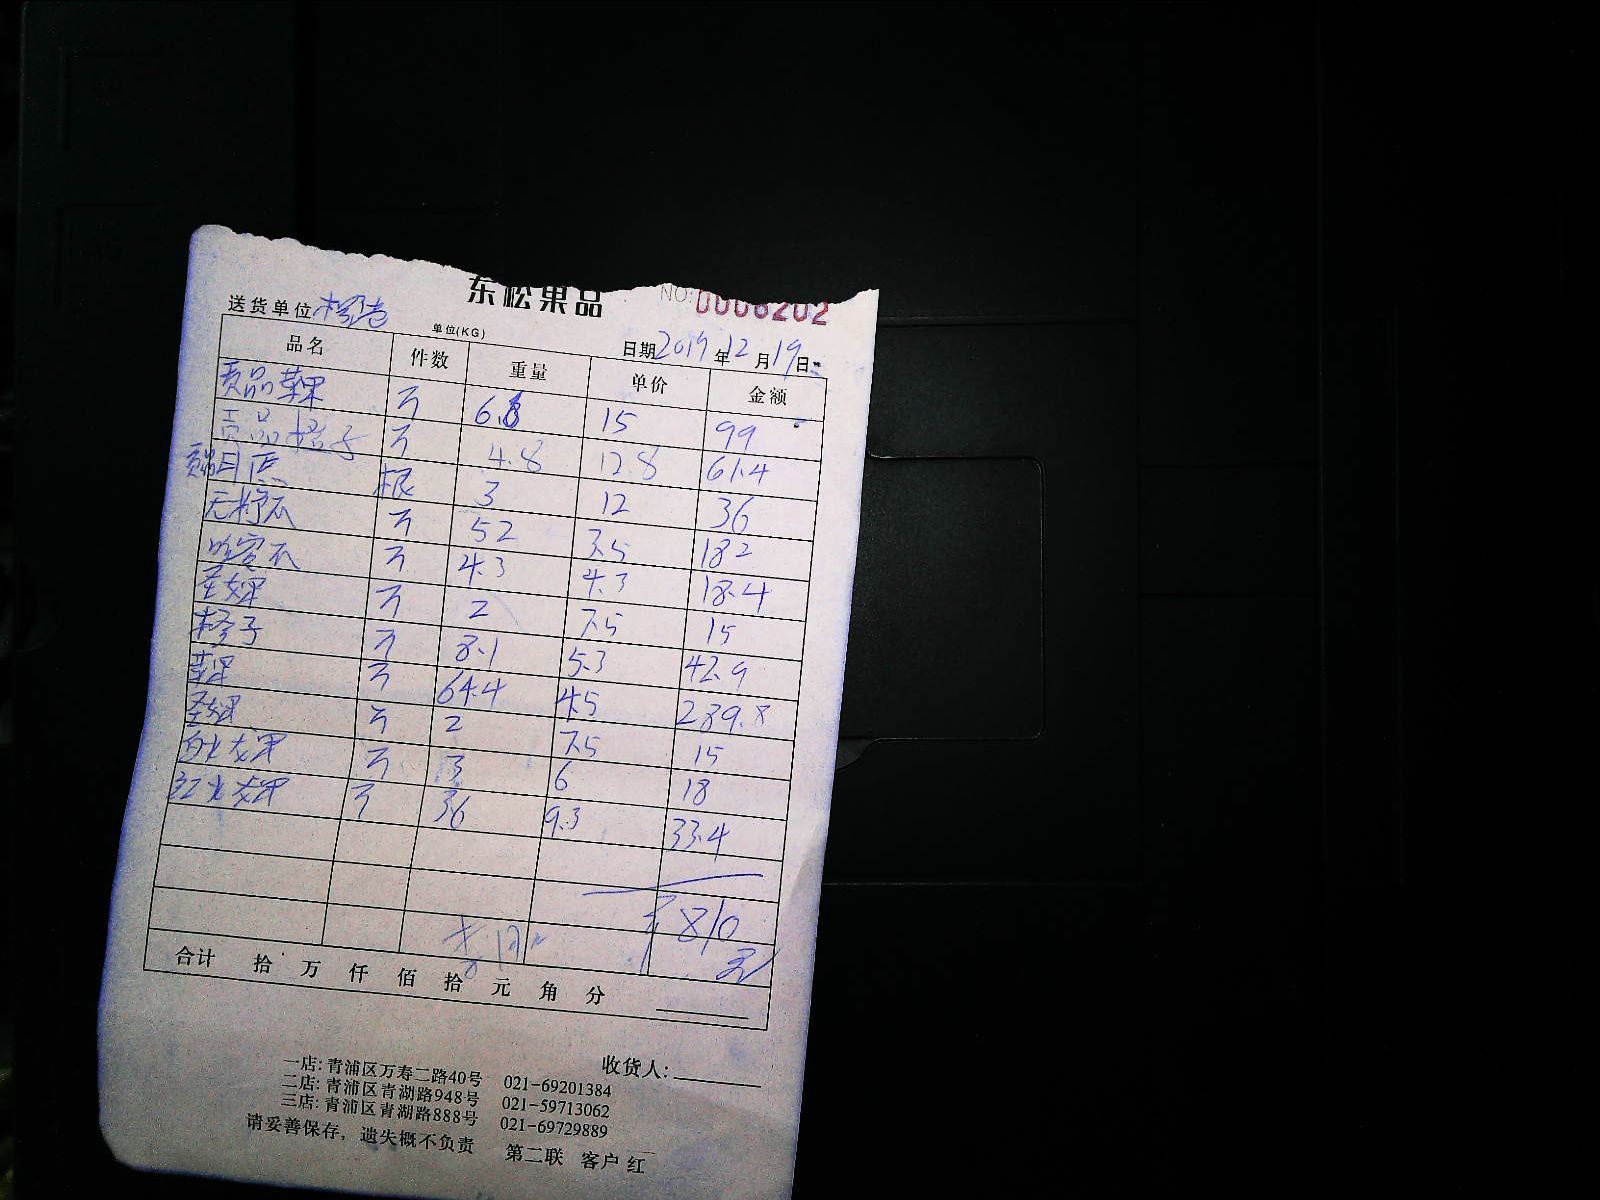 东松果品 NO: 0008202
送货单位
单位(KG)
日期 2019年12月19日
品名 件数 重量 单价 金额
贡品苹果 斤 6.6 15 99
贡品橙子 斤 4.8 12.8 61.4
根 3 12 36
斤 52 3.5 182
哈密瓜 斤 4.3 4.3 18.4
圣女果 斤 2 7.5 15
橙子 斤 8.1 5.3 42.9
苹果 斤 64.4 4.5 289.8
圣女果 斤 2 7.5 15
白火龙果 斤 3 6 18
红火龙果 斤 3.6 9.3 33.4
810
合计 拾 万 仟 佰 拾 元 角 分
收货人:
一店: 青浦区万寿二路40号 021-69201384
二店: 青浦区青湖路948号 021-59713062
三店: 青浦区青湖路888号 021-69729889
请妥善保存，遗失概不负责 第二联 客户 红